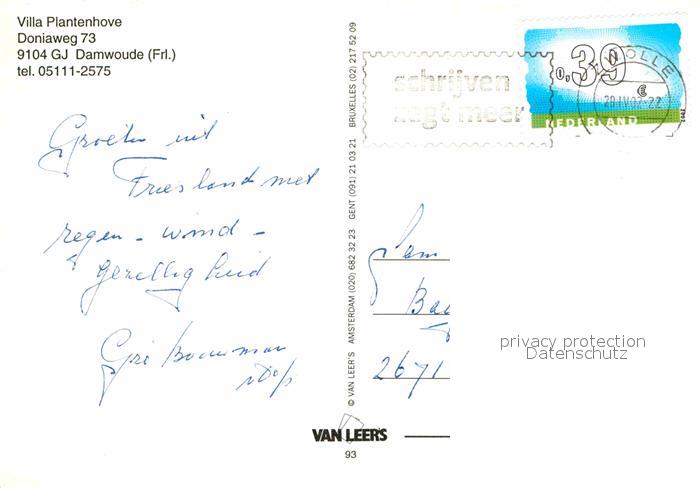 Villa Plantenhove
Doniaweg 73
9104 GJ Damwoude (Frl.)
tel. 05111-2575
Groeten uit
Friesland met
regen - wind -
& gezellig
Gré
© VAN LEER'S AMSTERDAM (020) 682 32 23 GENT (091) 21 03 21 BRUXELLES (02) 217 52 09
schrijven
zegt meer
0,39
€
NEDERLAND
ZWOLLE
29.IV.02-22
2671
privacy protection
Datenschutz
VAN LEER'S
93